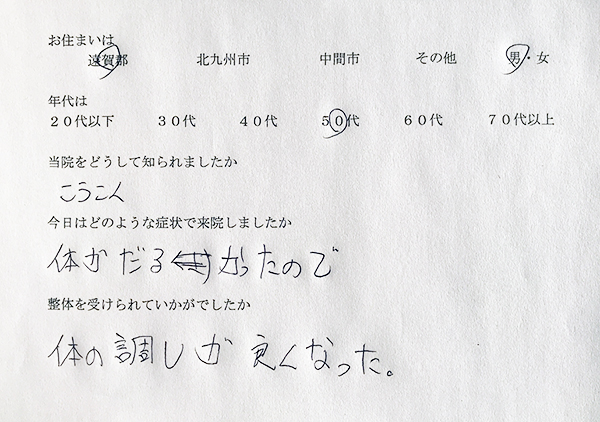 お住まいは
遠賀郡 北九州市 中間市 その他 男・女
年代は
20代以下 30代 40代 50代 60代 70代以上
当院をどうして知られましたか
こうこく
今日はどのような症状で来院しましたか
体がだるかったので
整体を受けられていかがでしたか
体の調しが良くなった。